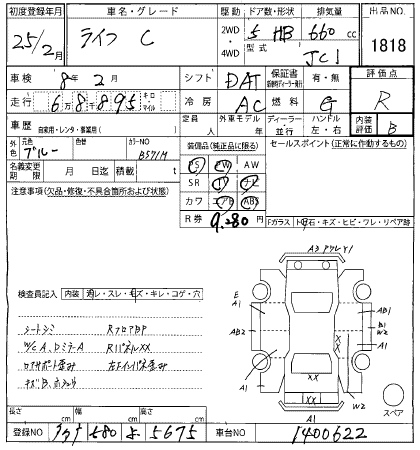 初度登録年月 車名・グレード 駆動 ドア数・形状 排気量 出品NO.
25/2月 ライフ C 2WD・4WD 5 HB 660cc 1818
型式 JC1
車検 8年2月 シフト DAT 保証書 有・無 評価点
走行 6万8895 キロ・マイル 冷房 AC 燃料 G R
車歴 自家用・レンタ・事業用( ) 定員 人 外車モデル 年 ディーラー・並行 ハンドル 左・右 内装評価 B
外色 元色 ブルー 色替 カラーNO B571M 装備品(純正品に限る) セールスポイント(正常に作動するもの)
名義変更期限 月 日迄 積載 t PS PW AW
注意事項(欠品・修復・不具合箇所および状態) SR ナビ
カワ エアB ABS
R券 9,280円
Fガラス トビ石・キズ・ヒビ・ワレ・リペア跡
A3 アタレY1
検査員記入 内装 汚レ・スレ・キズ・キレ・コゲ・穴
E A1
AB2
A1
AB1
B1
W2
A1
シートシミ RフロアBP
W/C A、DミラーA RパネルXX
コアサポート歪み
キズB、
XX
XX
W2
A1
スペア
長さ cm 幅 cm 高さ cm
登録NO 580 よ 5675 車台NO 1400622